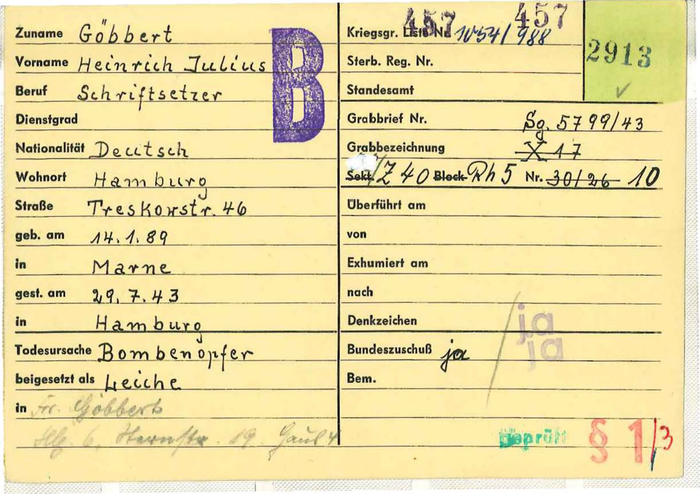 Zuname Göbbert
Vorname Heinrich Julius
Beruf Schriftsetzer
Dienstgrad
Nationalität Deutsch
Wohnort Hamburg
Straße Treskowstr. 46
geb. am 14.1.89
in Marne
gest. am 29.7.43
in Hamburg
Todesursache Bombenopfer
beigesetzt als Leiche
in Fr. Göbbert
Hbg. 6, Sternstr. 19.
B
457 457
Kriegsgr. Liste Nr. 1054/988
2913
Sterb. Reg. Nr.
Standesamt
Grabbrief Nr. Sg. 5799/43
Grabbezeichnung X 17
Sekt. Z 40 Block Rh 5 Nr. 30/26 10
Überführt am
von
Exhumiert am
nach
Denkzeichen ja
ja
Bundeszuschuß ja
Bem.
Geprüft § 1/3